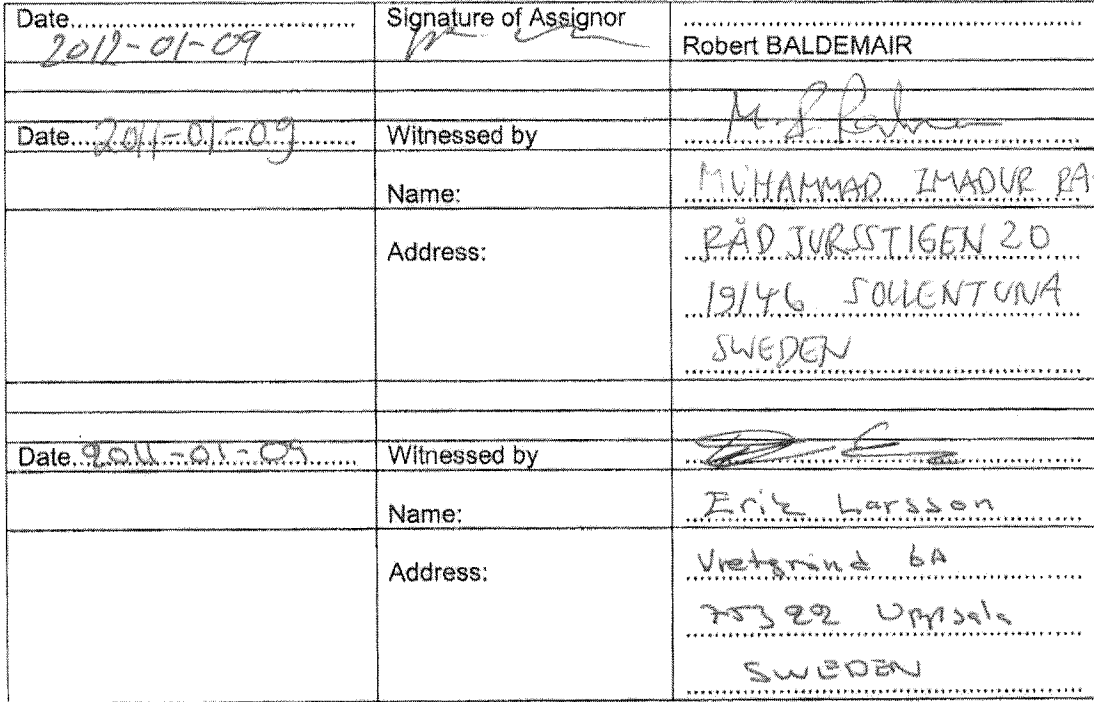 Date
Signature of Assignor
Robert BALDEMAIR
Date 2011-01-09
Witnessed by
Name:
MUHAMMAD IMADUR RA
Address:
RÅDJURSSTIGEN 20
19146 SOLLENTUNA
SWEDEN
Date 2011-01-09
Witnessed by
Name:
Erik Larsson
Address:
Vretgränd 6A
75322 Uppsala
SWEDEN